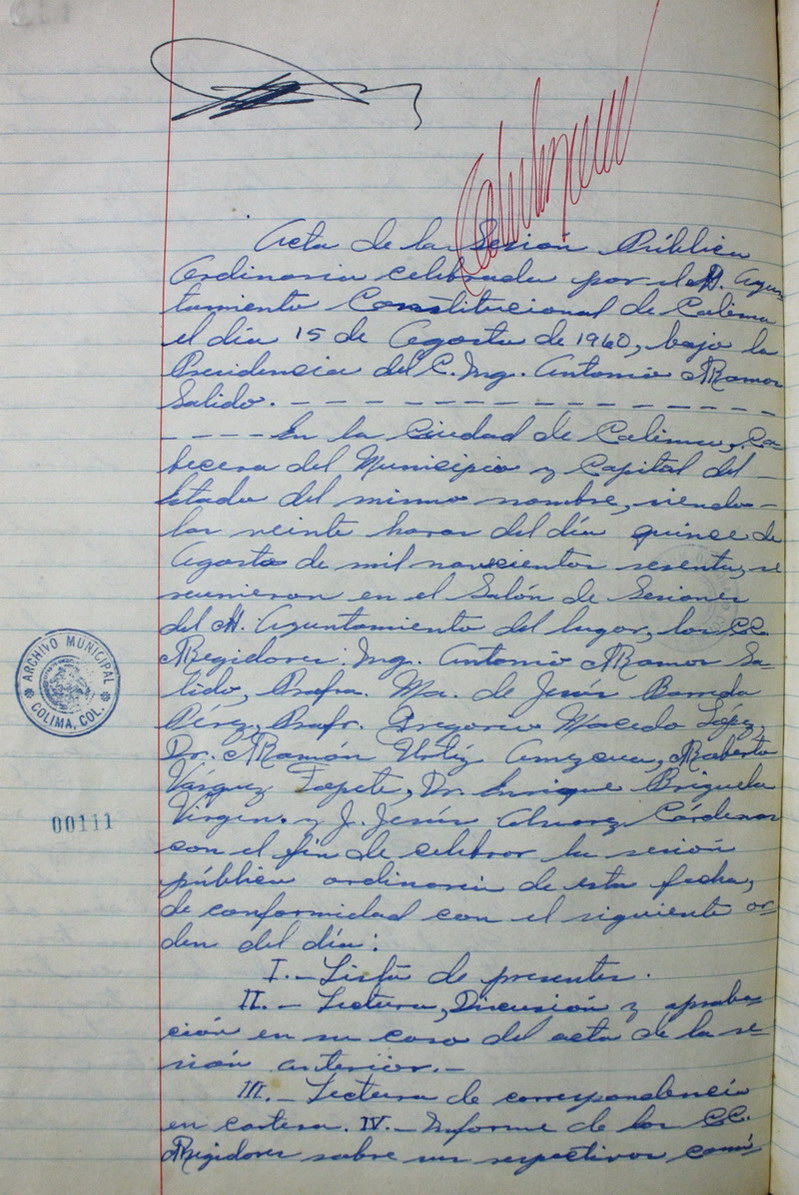 Acta de la Sesión Pública
Ordinaria celebrada por el H. Ayun-
tamiento Constitucional de Colima
el día 15 de Agosto de 1960, bajo la
Presidencia del C. Ing. Antonio Ramos
Salido. - - - - - - - - - - - - - - - - -
- - - - En la Ciudad de Colima, Ca-
becera del Municipio y Capital del -
Estado del mismo nombre, siendo -
las veinte horas del día quince de
Agosto de mil novecientos sesenta, se
reunieron en el Salón de Sesiones
del H. Ayuntamiento del lugar, los CC.
Regidores: Ing. Antonio Ramos Sa-
lido, Profra. Ma. de Jesús Barreda
Pérez, Profr. Gregorio Macedo López,
Dr. Ramón Urtiz Amezcua, Roberto
Vázquez Topete, Dr. Enrique Brizuela
Virgen. y J. Jesús Alvarez Cárdenas
con el fin de celebrar la sesión
pública ordinaria de esta fecha,
de conformidad con el siguiente or-
den del día:
I. - Lista de presentes.
II. - Lectura, Discusión y aproba-
ción en su caso del acta de la se-
sión anterior. -
III. - Lectura de correspondencia
en cartera. IV. - Informe de los C.C.
Regidores sobre sus respectivas comi-
ARCHIVO MUNICIPAL
COLIMA, COL.
00111